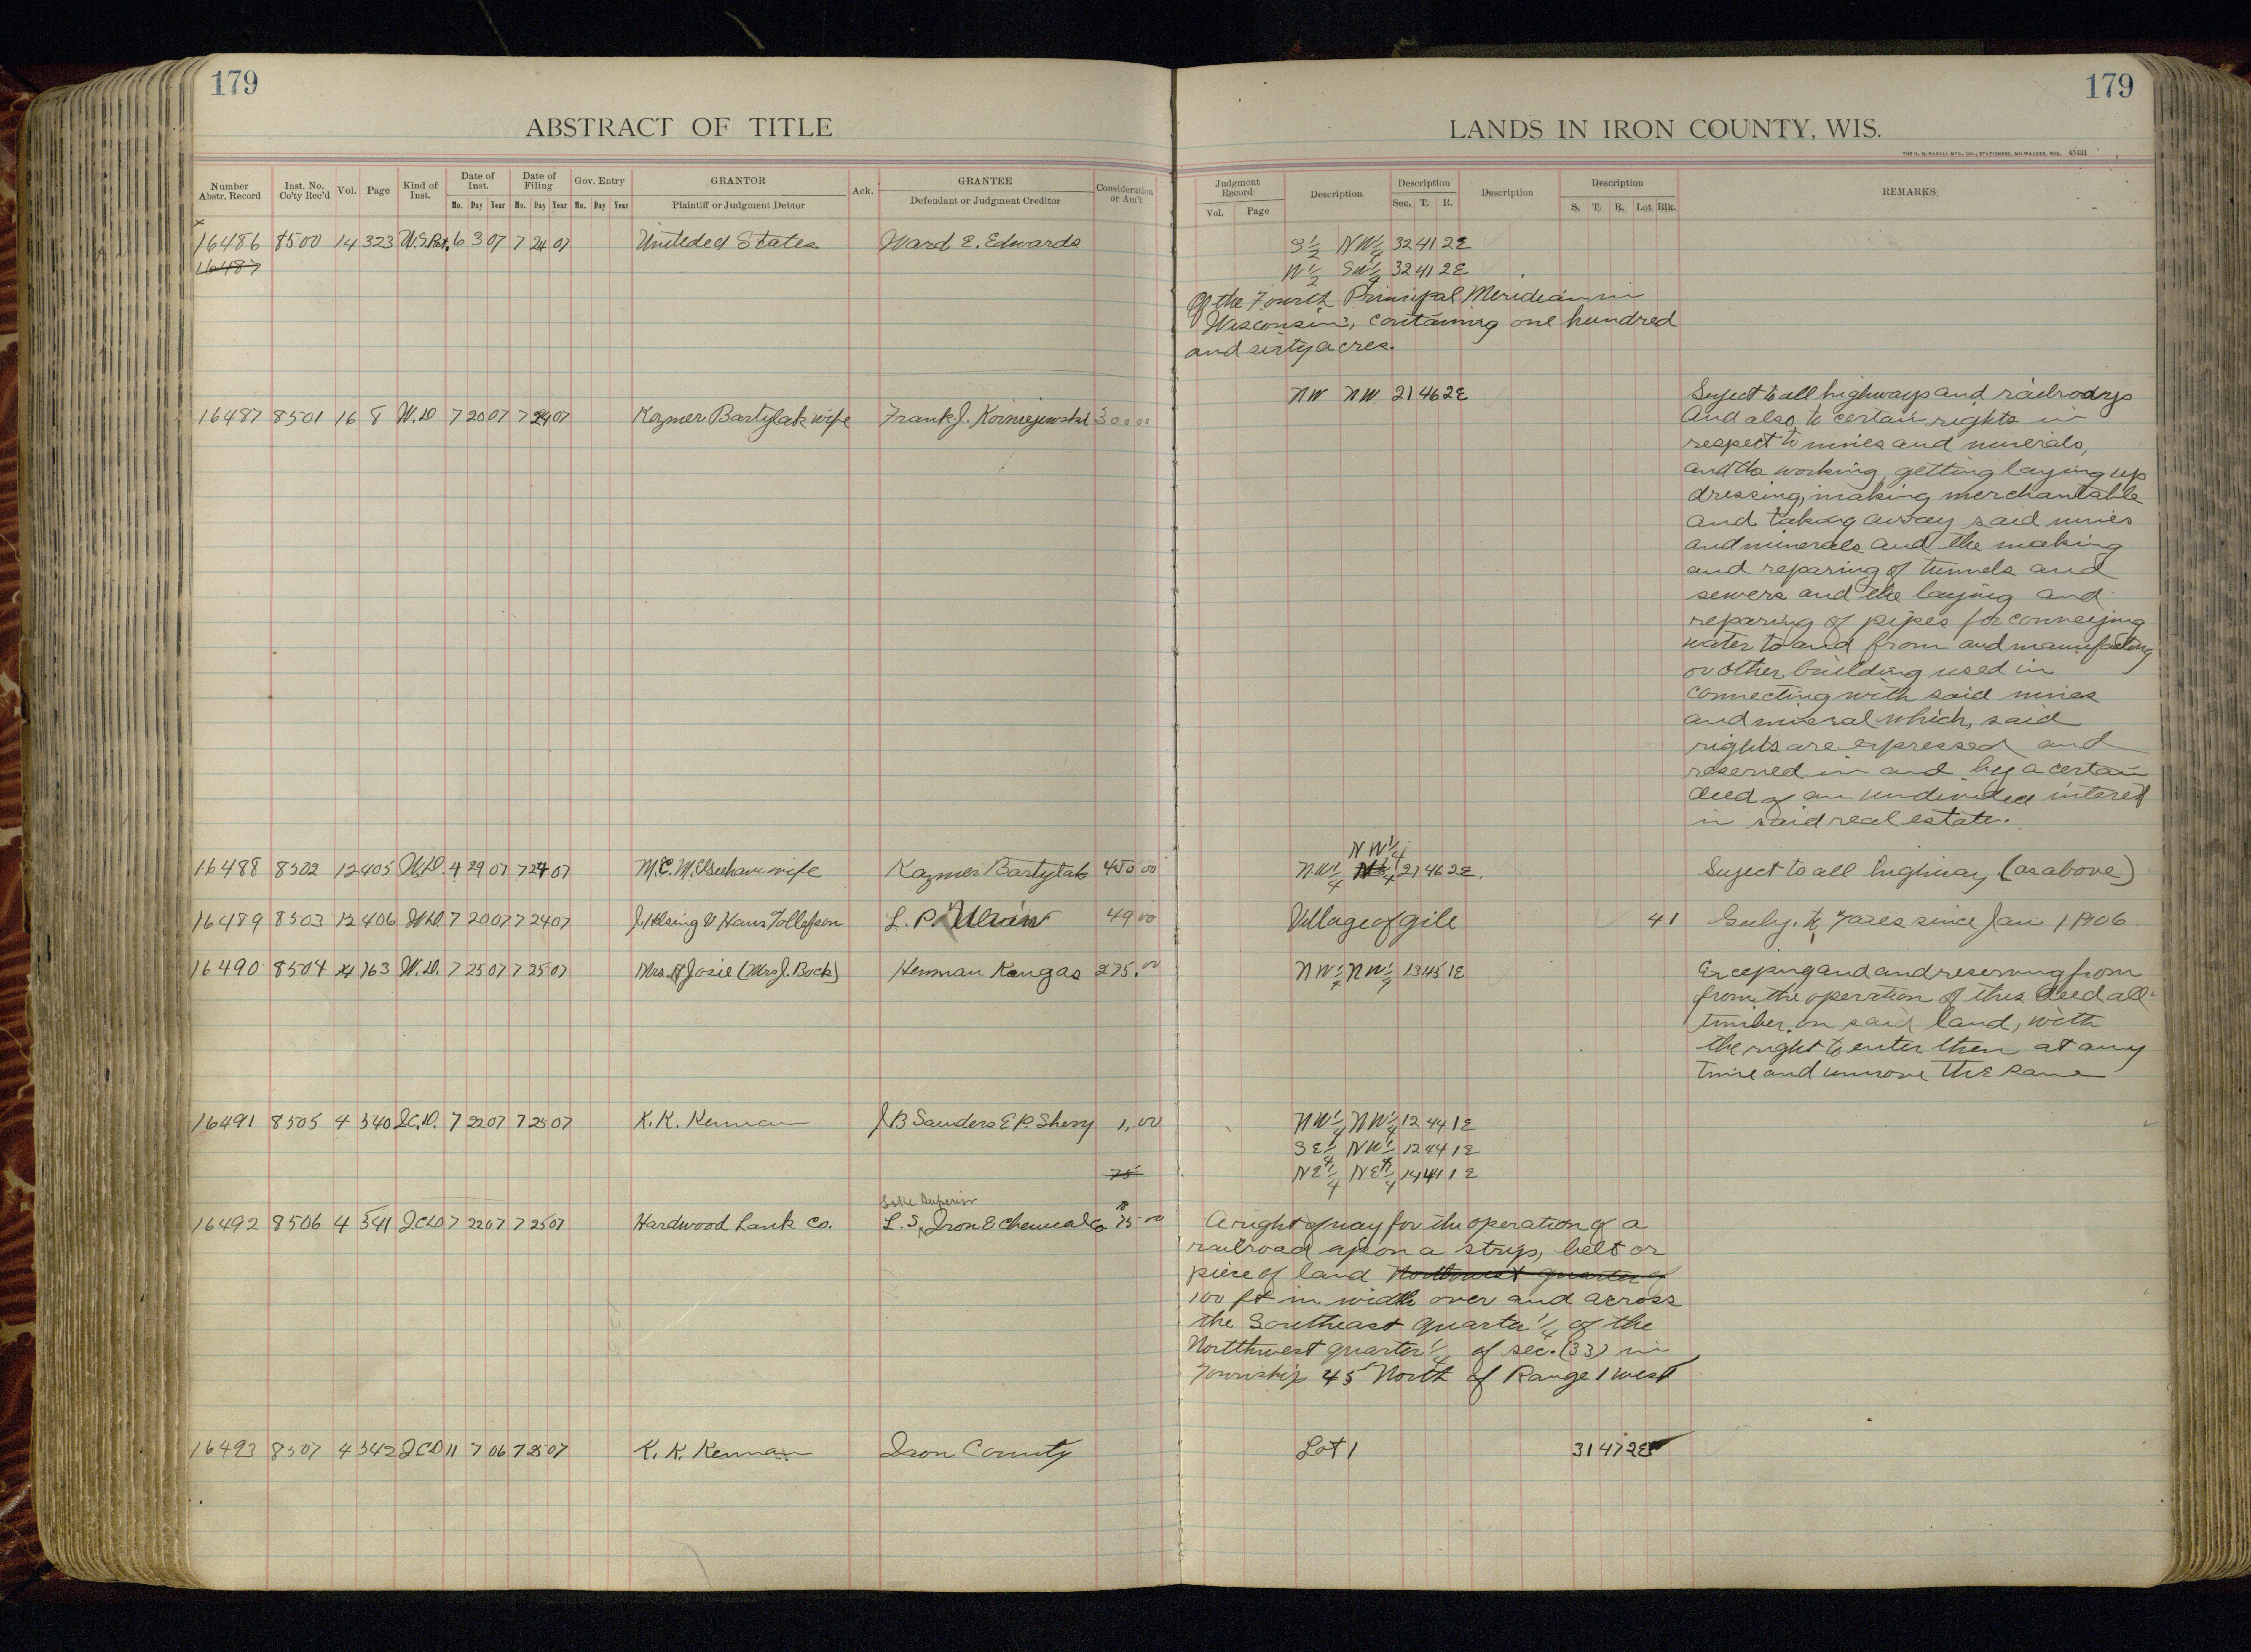 179
179
ABSTRACT OF TITLE
LANDS IN IRON COUNTY, WIS.
THE H. G. RAZALL MFG. CO., STATIONERS, MILWAUKEE, WIS. 45431
Number Abstr. Record
Inst. No. Co'ty Rec'd
Vol.
Page
Kind of Inst.
Date of Inst.
Mo. Day Year
Date of Filing
Mo. Day Year
Gov. Entry
Mo. Day Year
GRANTOR
Plaintiff or Judgment Debtor
Ack.
GRANTEE
Defendant or Judgment Creditor
Consideration or Am't
Judgment Record
Vol. Page
Description
Description
Sec. T. R.
Description
Description
S. T. R. Lot Blk.
REMARKS
x
16486 8500 14 323 U.S.Pat. 6 3 07 7 24 07 Uniteded States Ward E. Edwards S 1/2 NW 1/4 32 41 2E
16487 W 1/2 SW 1/4 32 41 2E
Of the Fourth Principal Meridian in
Wisconsin, containing one hundred
and sixty acres.
NW NW 21 46 2E
16487 8501 16 8 W.D 7 20 07 7 24 07 Kozmer Bartylak wife Frank J. 300 00
Suject to all highways and railroads
and also to certain rights in
respect to mines and minerals,
and to working, getting laying up
dressing, making merchantable
and taking away said mines
and minerals and the making
and reparing of tunnels and
sewers and the laying and
reparing of pipes for conveying
water to and from and
or other building used in
connecting with said mines
and mineral which, said
rights are expressed and
reserved in and by a certain
deed of an undivided interest
in said real estate.
NW 1/4
16488 8502 12 405 W.D. 4 29 07 7 24 07 wife Kazmer Bartylak 450 00 NW 1/4 21 46 2E. Suject to all highway (as above)
16489 8503 12 406 W.D. 7 20 07 7 24 07 Hans Tollefson L. P. 49 00 Village of Gile 41 to Taxes since Jan 1 1906
16490 8504 763 W.D. 7 25 07 7 25 07 Mrs. Josie (Mrs J. Bock) Herman Kangas 275.00 NW 1/4 NW 1/4 13 45 1E
Exceping and and reserving from
from the operation of this deed all
timber on said land, with
the right to enter then at any
time and the same
16491 8505 4 340 Q.C.D. 7 22 07 7 25 07 K. K. Kennan J B Sanders E P. Sherry 1.00 NW 1/4 NW 1/4 12 44 1E
SE 1/4 NW 1/4 12 44 1E
75 NE 1/4 NE 1/4 14 44 1E
Lake Superior
16492 8506 4 341 Q.C.D 7 22 07 7 25 07 Hardwood Co. L. S. Iron & Chemical Co 75 00
A right of way for the operation of a
railroad upon a strip, belt or
piece of land Northwest quarter of
100 ft in width over and across
the Southeast quarter 1/4 of the
Northwest quarter 1/4 of sec. (33) in
Township 45 North of Range 1 west
16493 8507 4 342 Q.C.D 11 7 06 7 25 07 K. K. Kennan Iron County Lot 1 31 47 2E